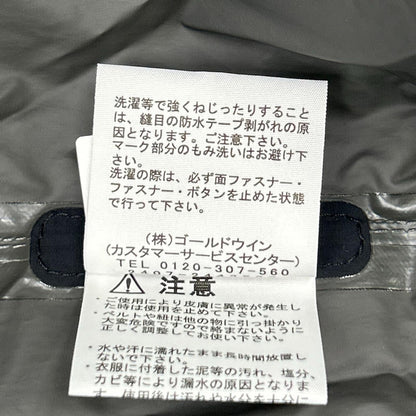 洗濯等で強くねじったりすること
は、縫目の防水テープ剥がれの原
因となります。ご注意下さい。
マーク部分のもみ洗いはお避け下
さい。
洗濯の際は、必ず面ファスナー・
ファスナー・ボタンを止めた状態
で行って下さい。
(株)ゴールドウイン
(カスタマーサービスセンター)
TEL 0120-307-560
⚠注意
・ご使用により皮膚に異常が発生し
た時は使用を止めて下さい。
・ベルトや紐は他の物に引っ掛かり
大変危険ですので絡まないように
正しく調整してお使い下さい。
・水や汗に濡れたまま長時間放置し
ないで下さい。
・衣服に付着した泥等の汚れ、塩分、
カビ等により漏水の原因となりま
す。使用後は汚れや水分を